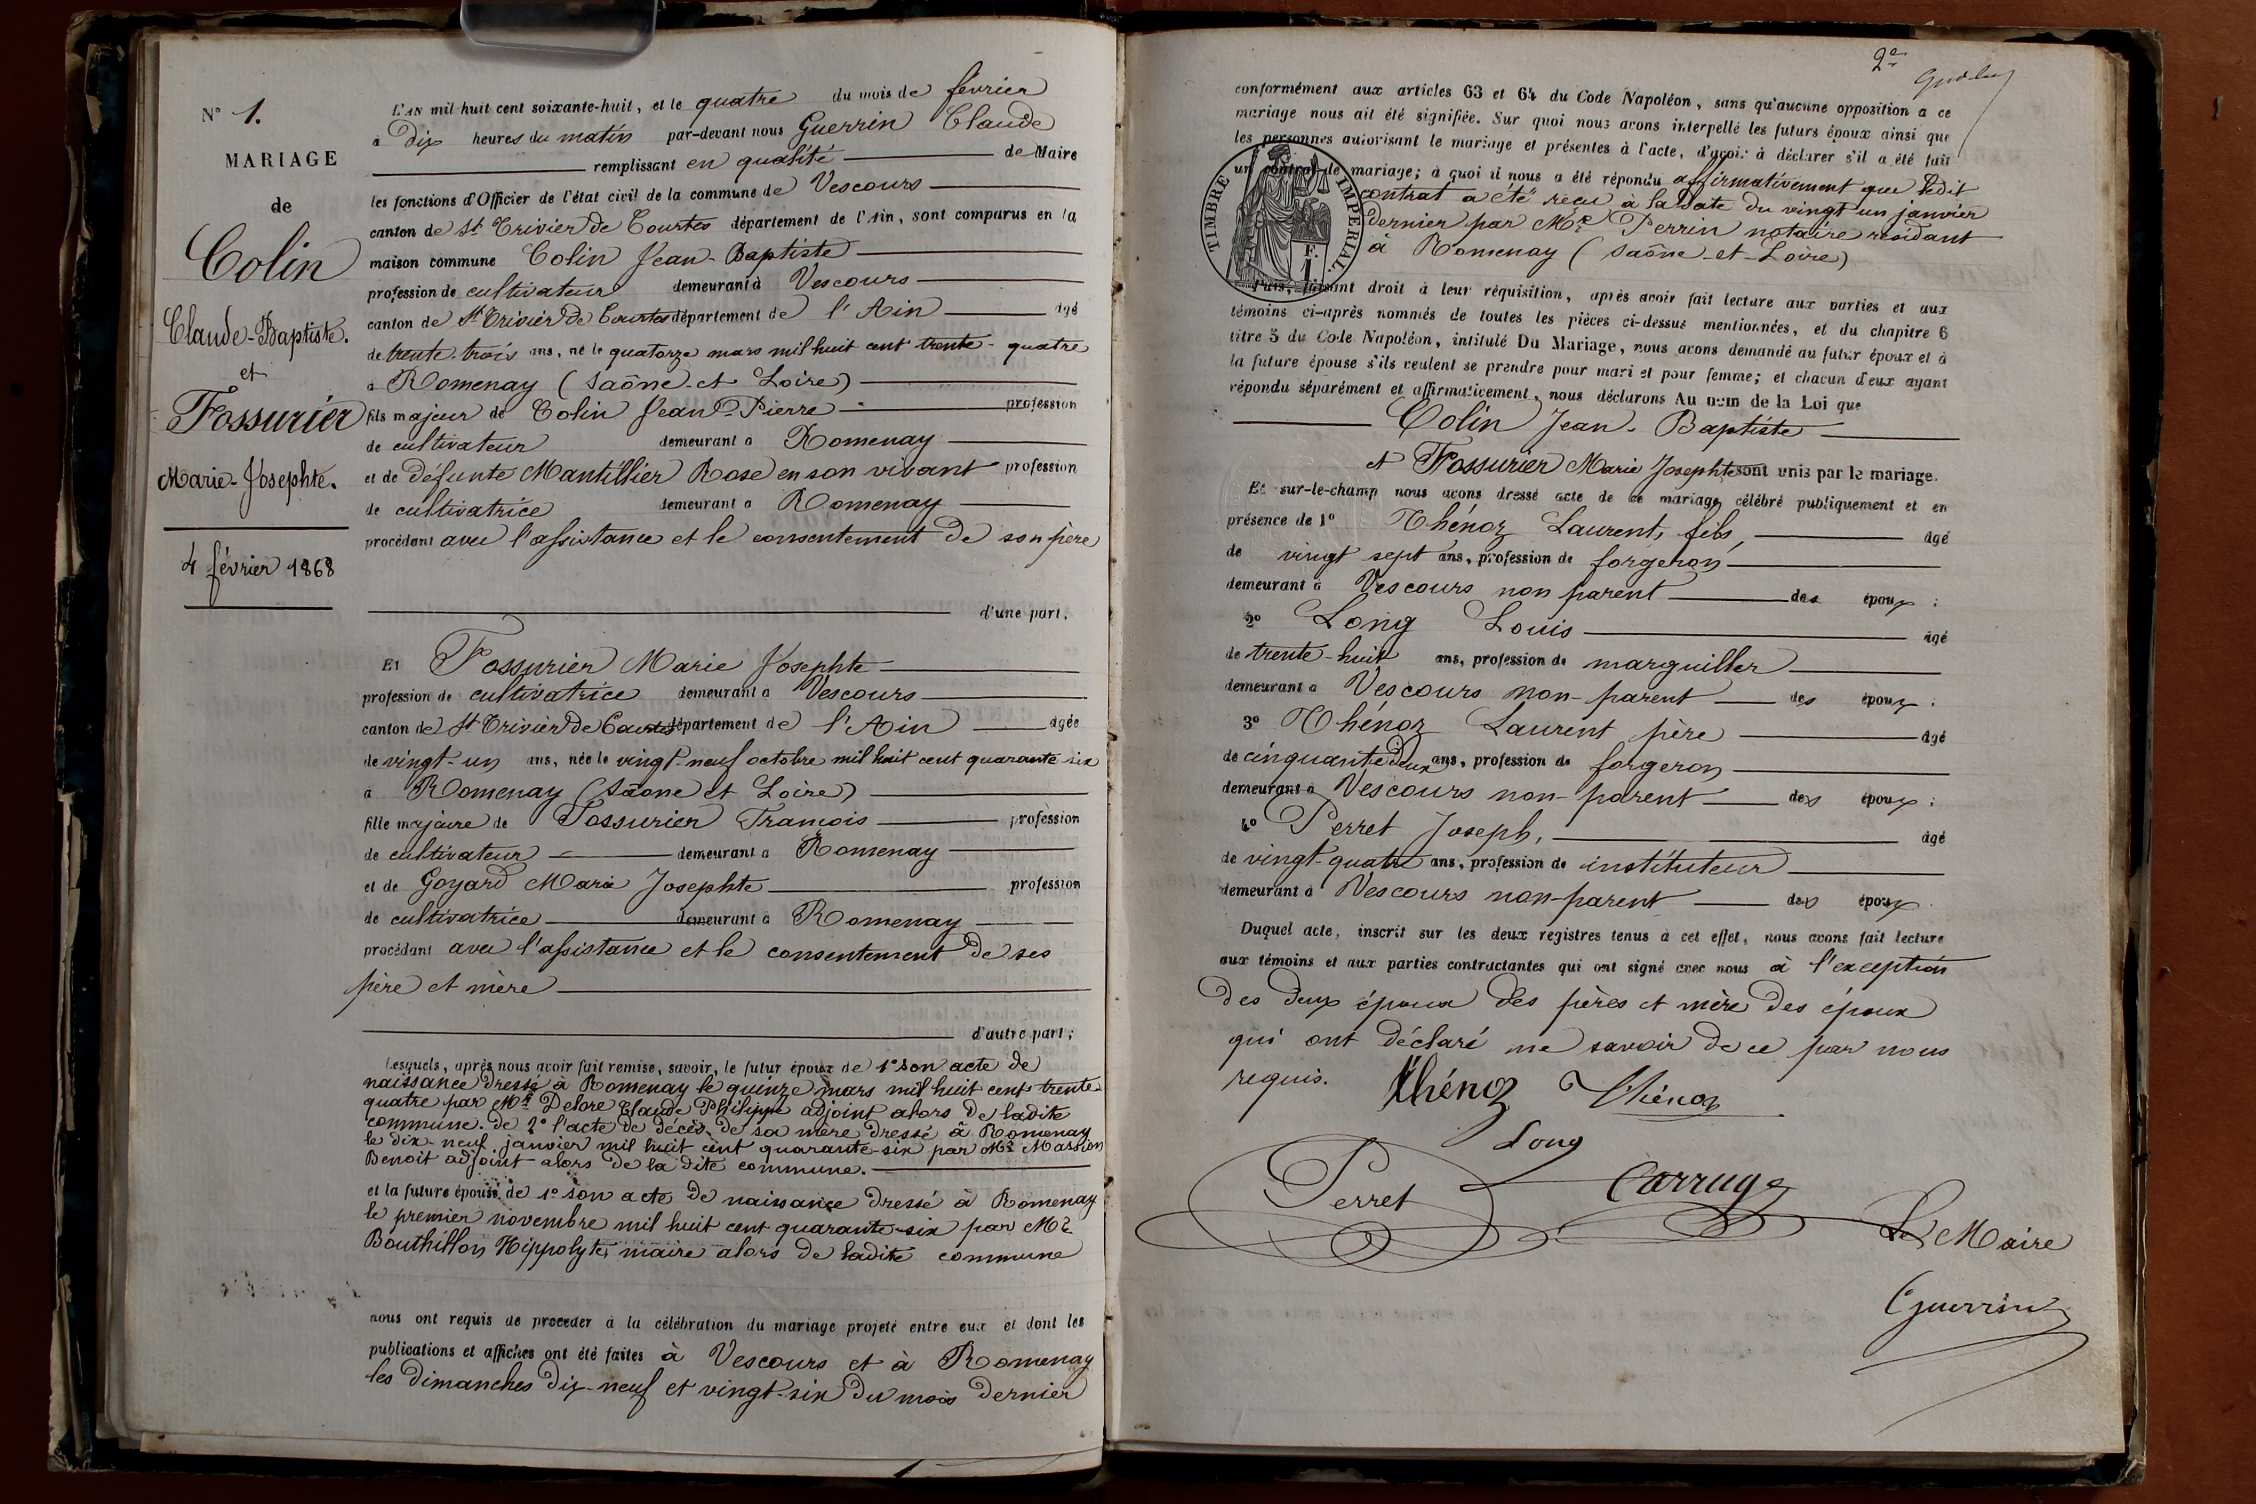 N° 1.
MARIAGE
de
Colin
Claude-Baptiste.
et
Fossurier
Marie-Josephte.
4 février 1868
L'AN mil huit cent soixante-huit, et le quatre du mois de février
à dix heures du matin par-devant nous Guerrin Claude
remplissant en qualité de Maire
les fonctions d'Officier de l'état civil de la commune de Vescours
canton de St Trivier de Courtes département de l'Ain, sont comparus en la
maison commune Colin Jean-Baptiste
profession de cultivateur demeurant à Vescours
canton de St Trivier de Courtes département de l'Ain âgé
de trente-trois ans, né le quatorze mars mil huit cent trente-quatre
à Romenay (Saône-et-Loire)
fils majeur de Colin Jean-Pierre profession
de cultivateur demeurant à Romenay
et de défunte Mantillier Rose en son vivant profession
de cultivatrice demeurant à Romenay
procédant avec l'assistance et le consentement de son père
d'une part,
Et Fossurier Marie Josephte
profession de cultivatrice demeurant à Vescours
canton de St Trivier de Courtes département de l'Ain âgée
de vingt-un ans, née le vingt-neuf octobre mil huit cent quarante-six
à Romenay (Saône et Loire)
fille majeure de Fossurier François profession
de cultivateur demeurant à Romenay
et de Goyard Marie Josephte profession
de cultivatrice demeurant à Romenay
procédant avec l'assistance et le consentement de ses
père et mère
d'autre part;
Lesquels, après nous avoir fait remise, savoir, le futur époux de 1° son acte de
naissance dressé à Romenay le quinze mars mil huit cent trente-
quatre par Mr Delore Claude Philippe adjoint alors de ladite
commune. de 2° l'acte de décès de sa mère dressé à Romenay
le dix-neuf janvier mil huit cent quarante-six par Mr Massion
Benoit adjoint alors de la dite commune.
et la future épouse de 1° son acte de naissance dressé à Romenay
le premier novembre mil huit cent quarante-six par Mr
Bouthillon Hippolyte, maire alors de ladite commune
nous ont requis de proceder à la célébration du mariage projeté entre eux et dont les
publications et affiches ont été faites à Vescours et à Romenay
les dimanches dix-neuf et vingt-six du mois dernier
2e
conformément aux articles 63 et 64 du Code Napoléon, sans qu'aucune opposition a ce
mariage nous ait été signifiée. Sur quoi nous avons interpellé les futurs époux ainsi que
les personnes autorisant le mariage et présentes à l'acte, d'avoir à déclarer s'il a été fait
un contrat de mariage; à quoi il nous a été répondu affirmativement que ledit
contrat a été reçu à la date du vingt un janvier
dernier par Me Perrin notaire résidant
à Romenay (Saône-et-Loire)
TIMBRE IMPERIAL.
F.
1.
Puis, faisant droit à leur réquisition, après avoir fait lecture aux parties et aux
témoins ci-après nommés de toutes les pièces ci-dessus mentionnées, et du chapitre 6
titre 5 du Code Napoléon, intitulé Du Mariage, nous avons demandé au futur époux et à
la future épouse s'ils veulent se prendre pour mari et pour femme; et chacun d'eux ayant
répondu séparément et affirmativement, nous déclarons Au nom de la Loi que
Colin Jean-Baptiste
et Fossurier Marie Josephte sont unis par le mariage.
Et sur-le-champ nous avons dressé acte de ce mariage célébré publiquement et en
présence de 1° Thénoz Laurent, fils, âgé
de vingt sept ans, profession de forgeron
demeurant à Vescours non parent des époux ;
2° Long Louis âgé
de trente-huit ans, profession de marguiller
demeurant à Vescours non-parent des époux ;
3° Thénoz Laurent père âgé
de cinquante deux ans, profession de forgeron
demeurant à Vescours non-parent des époux ;
4° Perret Joseph, âgé
de vingt-quatre ans, profession de instituteur
demeurant à Vescours non-parent des époux
Duquel acte, inscrit sur les deux registres tenus à cet effet, nous avons fait lecture
aux témoins et aux parties contractantes qui ont signé avec nous à l'exception
des deux époux des pères et mère des époux
qui ont déclaré ne savoir de ce par nous
requis. Thénoz Thénoz
Long
Perret Carruge
Le Maire
Guerrin